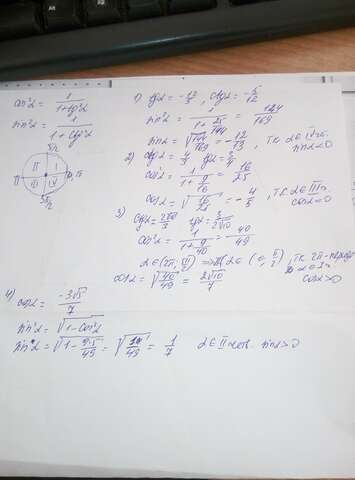 cos²α = 1/(1+tg²α)
sin²α = 1/(1+ctg²α)
π/2
II I
π 0, 2π
III IV
3π/2
1) tgα = -12/5, ctgα = -5/12
sin²α = 1/(1+25/144) = 144/169
sinα = √(144/169) = -12/13, т.к. α ∈ IV ч. sinα<0
2) ctgα = 4/3 tgα = 3/4
cos²α = 1/(1+9/16) = 16/25
cosα = √(16/25) = -4/5, т.к. α ∈ III ч. cosα<0
3) ctgα = 2√10/3 tgα = 3/(2√10)
cos²α = 1/(1+9/40) = 40/49
α ∈ (2π; ) => α ∈ (0; π/2), т.к. 2π-период
α ∈ I ч.
cosα = √(40/49) = 2√10/7 cosα>0
4) cosα = -3√5/7
sin²α = √(1-cos²α)
sin²α = √(1- 9·5/49) = √( /49) = 1/7 α ∈ II чет. sinα>0